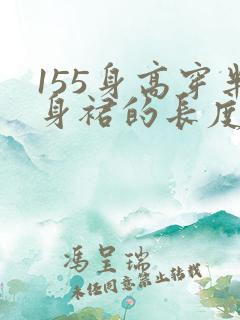 155身高穿半
身裙的长度
冯呈瑞
未经同意禁止转载